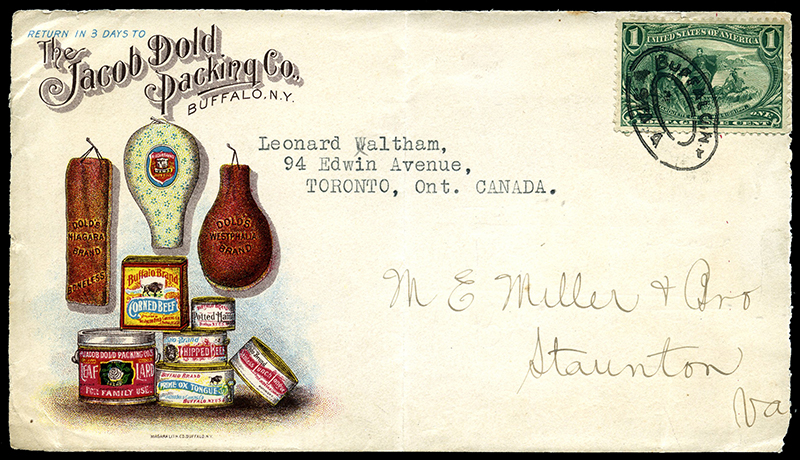 RETURN IN 3 DAYS TO
The
Jacob Dold
Packing Co.,
BUFFALO, N.Y.
1 UNITED STATES OF AMERICA 1
ONE
CENT
BUFFALO
Leonard Waltham,
94 Edwin Avenue,
TORONTO, Ont. CANADA.
DOLD'S
NIAGARA
BRAND
BONELESS
DOLD'S
WESTPHALIA
BRAND
Buffalo Brand
CORNED BEEF
Potted Ham
CHIPPED BEEF
BUFFALO BRAND
PRIME OX TONGUE
BUFFALO, N.Y. U.S.
JACOB DOLD PACKING CO'S
LEAF LARD
FOR FAMILY USE.
M E Miller & Bro
Staunton
Va
NIAGARA LITH. CO. BUFFALO, N.Y.